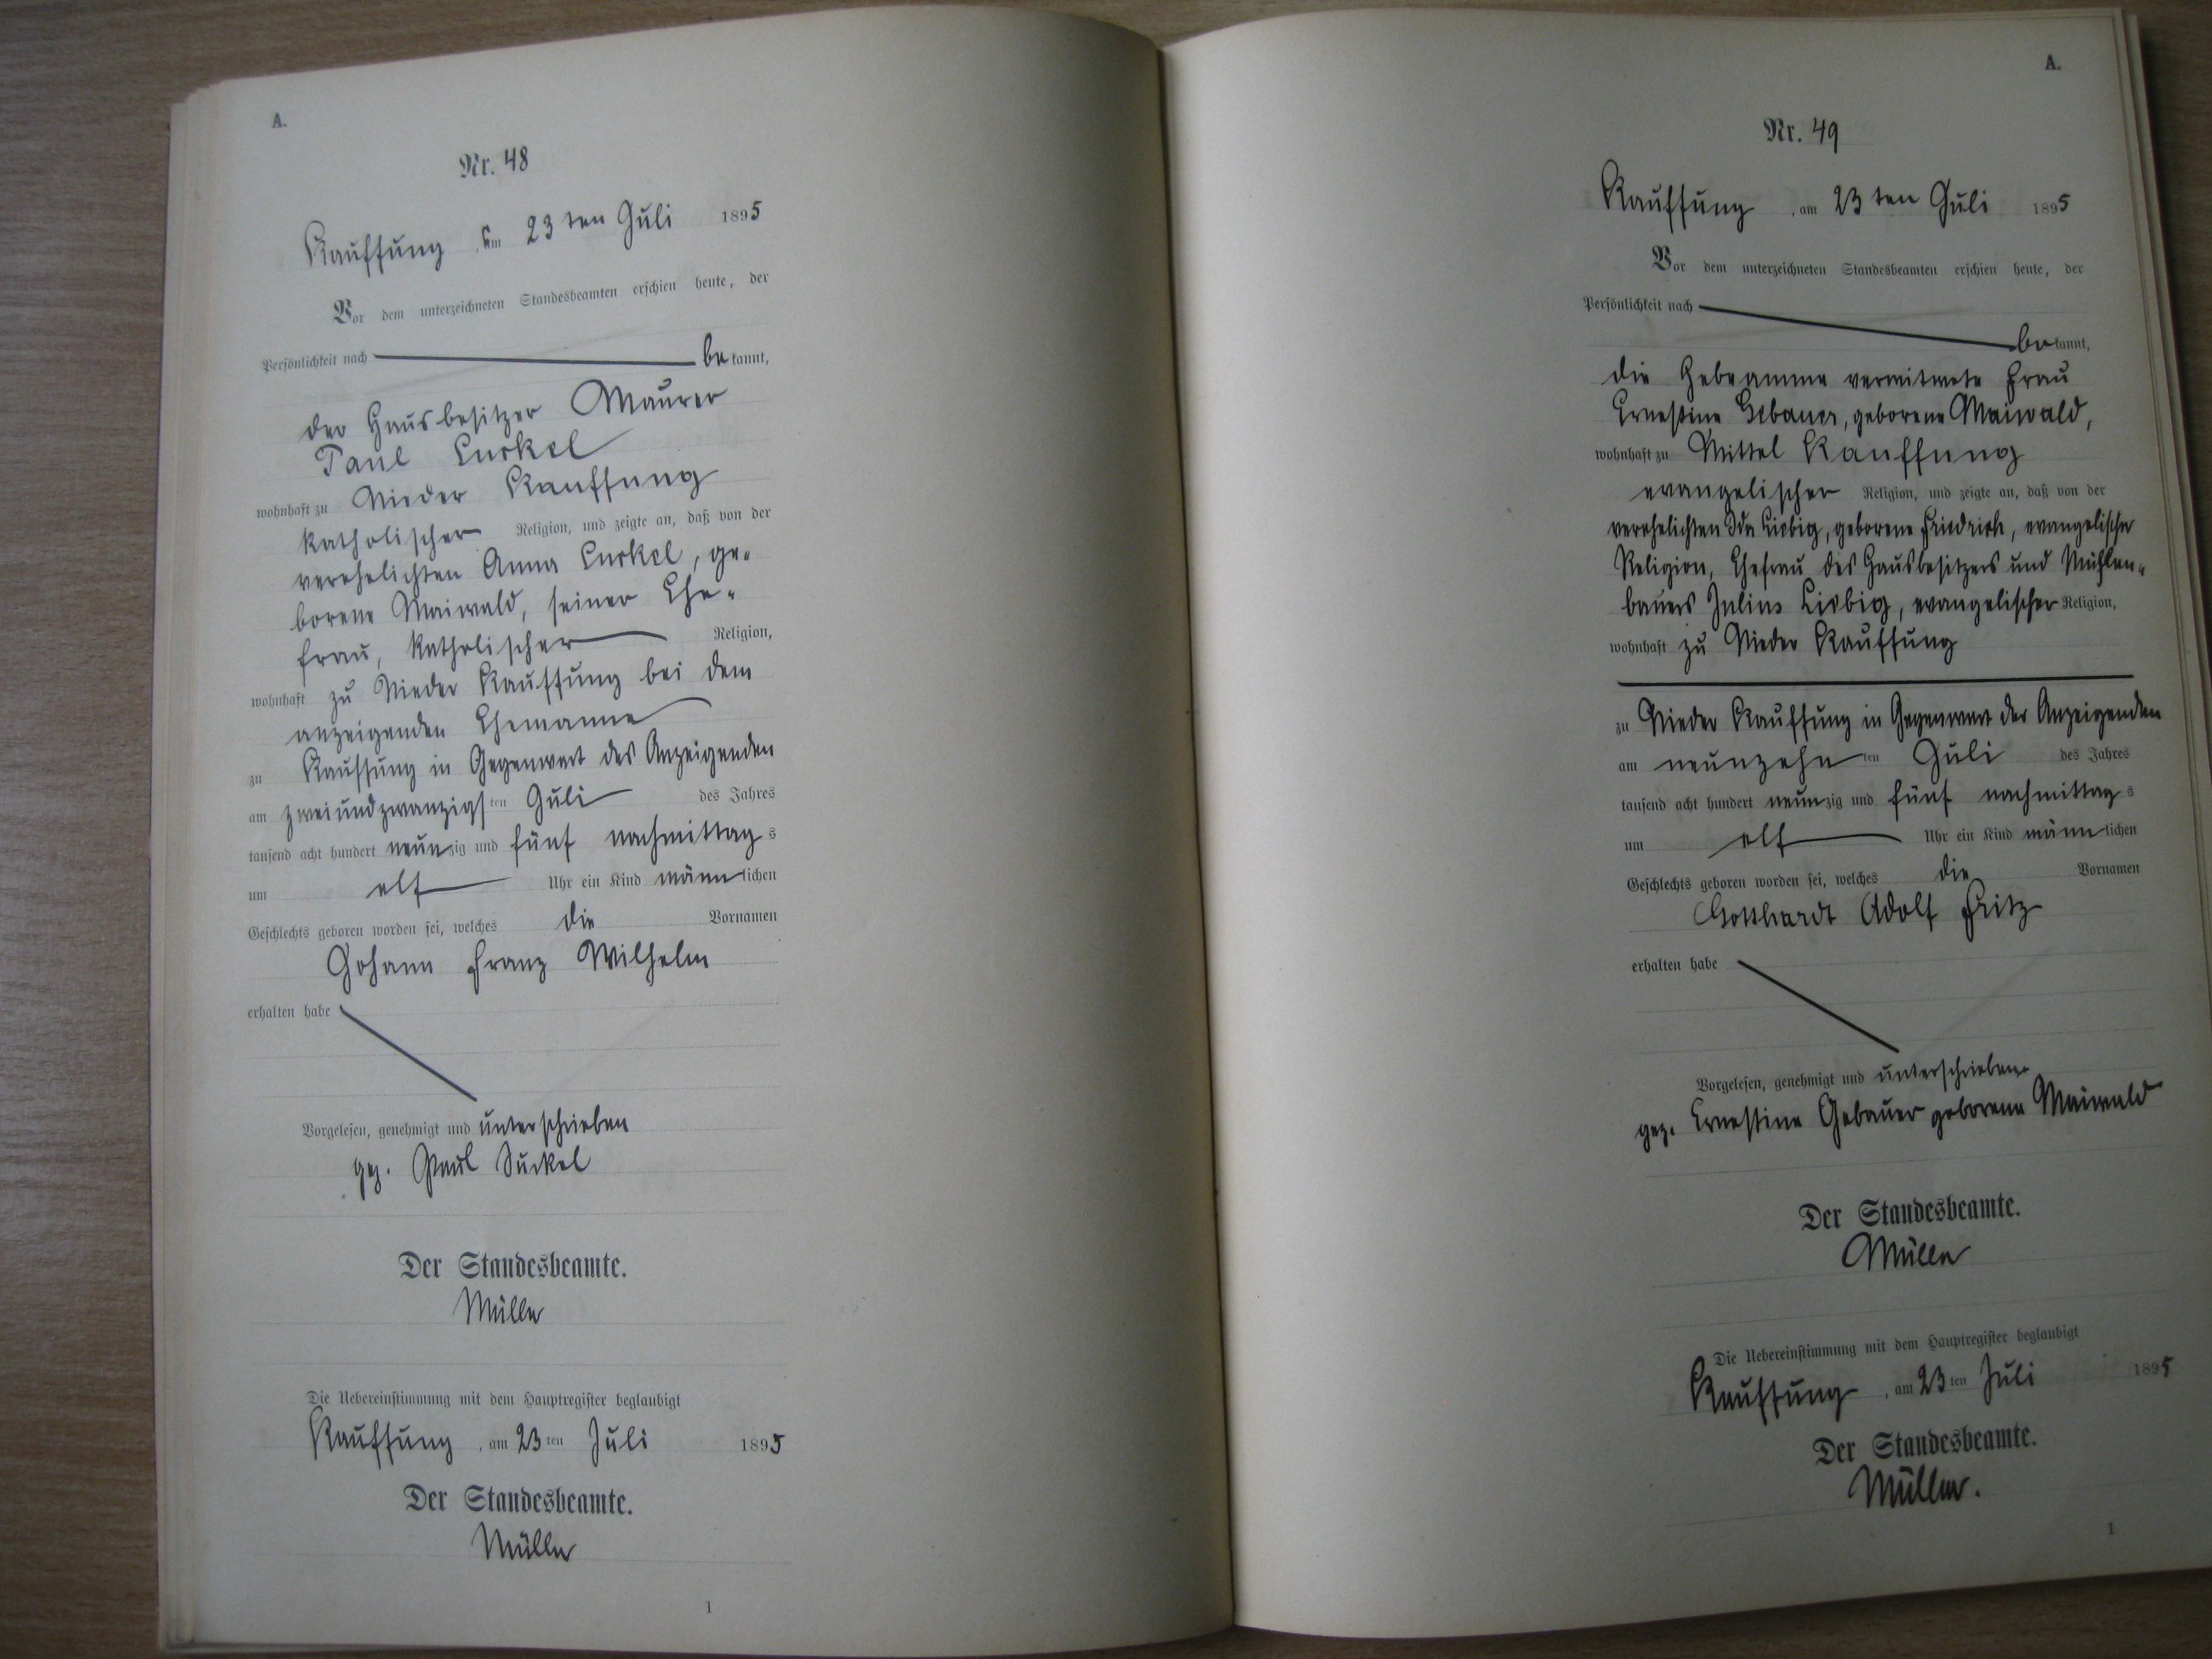 A.
Nr. 48
Kauffung, am 23 ten Juli 1895
Vor dem unterzeichneten Standesbeamten erschien heute, der
Persönlichkeit nach bekannt,
der Hausbesitzer Maurer
Paul Suckel
wohnhaft zu Nieder Kauffung
katholischer Religion, und zeigte an, daß von der
verehelichten Anna Suckel, ge-
borene Maiwald, seiner Ehe-
frau, katholischer Religion,
wohnhaft zu Nieder Kauffung bei dem
anzeigenden Ehemanne
zu Kauffung in Gegenwart des Anzeigenden
am zweiundzwanzigsten Juli des Jahres
tausend acht hundert neunzig und fünf nachmittags
um elf Uhr ein Kind männlichen
Geschlechts geboren worden sei, welches die Vornamen
Johann Franz Wilhelm
erhalten habe
Vorgelesen, genehmigt und unterschrieben
gez. Paul Suckel
Der Standesbeamte.
Müller
Die Uebereinstimmung mit dem Hauptregister beglaubigt
Kauffung, am 23 ten Juli 1895
Der Standesbeamte.
Müller
1
A.
Nr. 49
Kauffung, am 23 ten Juli 1895
Vor dem unterzeichneten Standesbeamten erschien heute, der
Persönlichkeit nach bekannt,
die Hebeamme verwitwete Frau
Ernestine Gebauer, geborene Maiwald,
wohnhaft zu Mittel Kauffung
evangelischer Religion, und zeigte an, daß von der
verehelichten Ida Liebig, geborene Friedrich, evangelischer
Religion, Ehefrau des Hausbesitzers und Mühlen-
bauers Julius Liebig, evangelischer Religion,
wohnhaft zu Nieder Kauffung
zu Nieder Kauffung in Gegenwart der Anzeigenden
am neunzehnten Juli des Jahres
tausend acht hundert neunzig und fünf nachmittags
um elf Uhr ein Kind männlichen
Geschlechts geboren worden sei, welches die Vornamen
Gotthardt Adolf Fritz
erhalten habe
Vorgelesen, genehmigt und unterschrieben
gez. Ernestine Gebauer geborene Maiwald
Der Standesbeamte.
Müller
Die Uebereinstimmung mit dem Hauptregister beglaubigt
Kauffung, am 23 ten Juli 1895
Der Standesbeamte.
Müller.
1